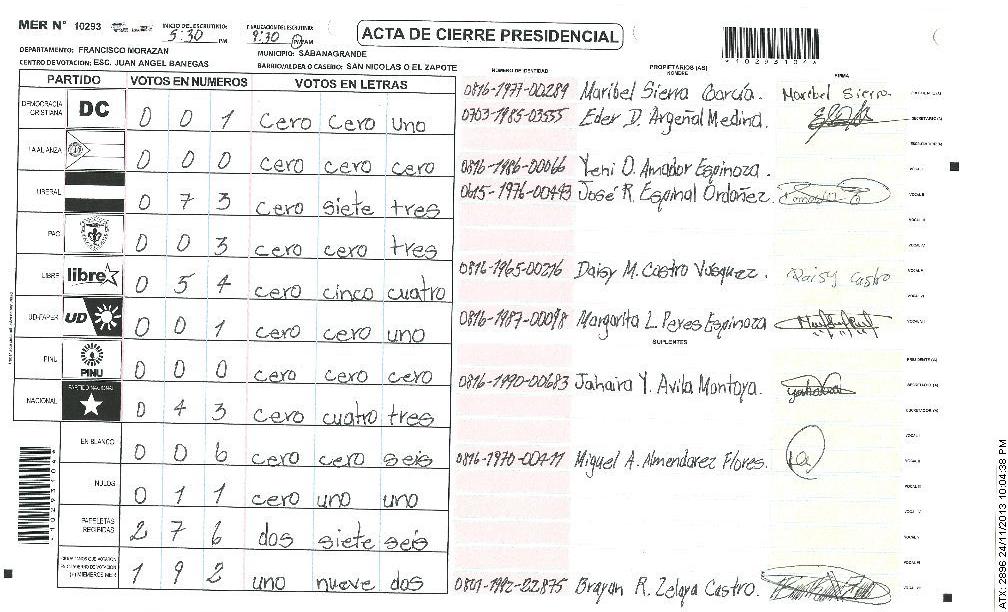 MER N° 10293
INICIO DEL ESCRUTINIO: 5:30 PM
FINALIZACION DEL ESCRUTINIO: 9:30 PM/AM
ACTA DE CIERRE PRESIDENCIAL
DEPARTAMENTO: FRANCISCO MORAZAN
MUNICIPIO: SABANAGRANDE
CENTRO DE VOTACION: ESC. JUAN ANGEL BANEGAS
BARRIO/ALDEA O CASERIO: SAN NICOLAS O EL ZAPOTE
PARTIDO VOTOS EN NUMEROS VOTOS EN LETRAS
DEMOCRACIA CRISTIANA DC 0 0 1 cero cero uno
LA ALIANZA 0 0 0 cero cero cero
LIBERAL 0 7 3 cero siete tres
PAC 0 0 3 cero cero tres
LIBRE libre 0 5 4 cero cinco cuatro
UD-FAPER UD 0 0 1 cero cero uno
PINU PINU 0 0 0 cero cero cero
NACIONAL PARTIDO NACIONAL 0 4 3 cero cuatro tres
EN BLANCO 0 0 6 cero cero seis
NULOS 0 1 1 cero uno uno
PAPELETAS RECIBIDAS 2 7 6 dos siete seis
1 9 2 uno nueve dos
NUMERO DE IDENTIDAD PROPIETARIOS (AS) NOMBRE FIRMA
*10293104*
0816-1977-00289 Maribel Sierra García. Maribel Sierra
0703-1985-03555 Eder D. Argeñal Medina. SECRETARIO(A)
0816-1986-00066 Yeni O. Amador Espinoza.
0615-1976-00493 José R. Espinal Ordoñez.
0816-1965-00216 Daisy M. Castro Vasquez. Daisy Castro
0816-1987-00098 Margarita L. Peres Espinoza
SUPLENTES
0816-1990-00683 Jahaira Y. Avila Montoya.
0816-1970-00411 Miguel A. Almendarez Flores.
0801-1982-22875 Brayan R. Zelaya Castro.
*10293104*
ATX- 2896 24/11/2013 10:04:38 PM